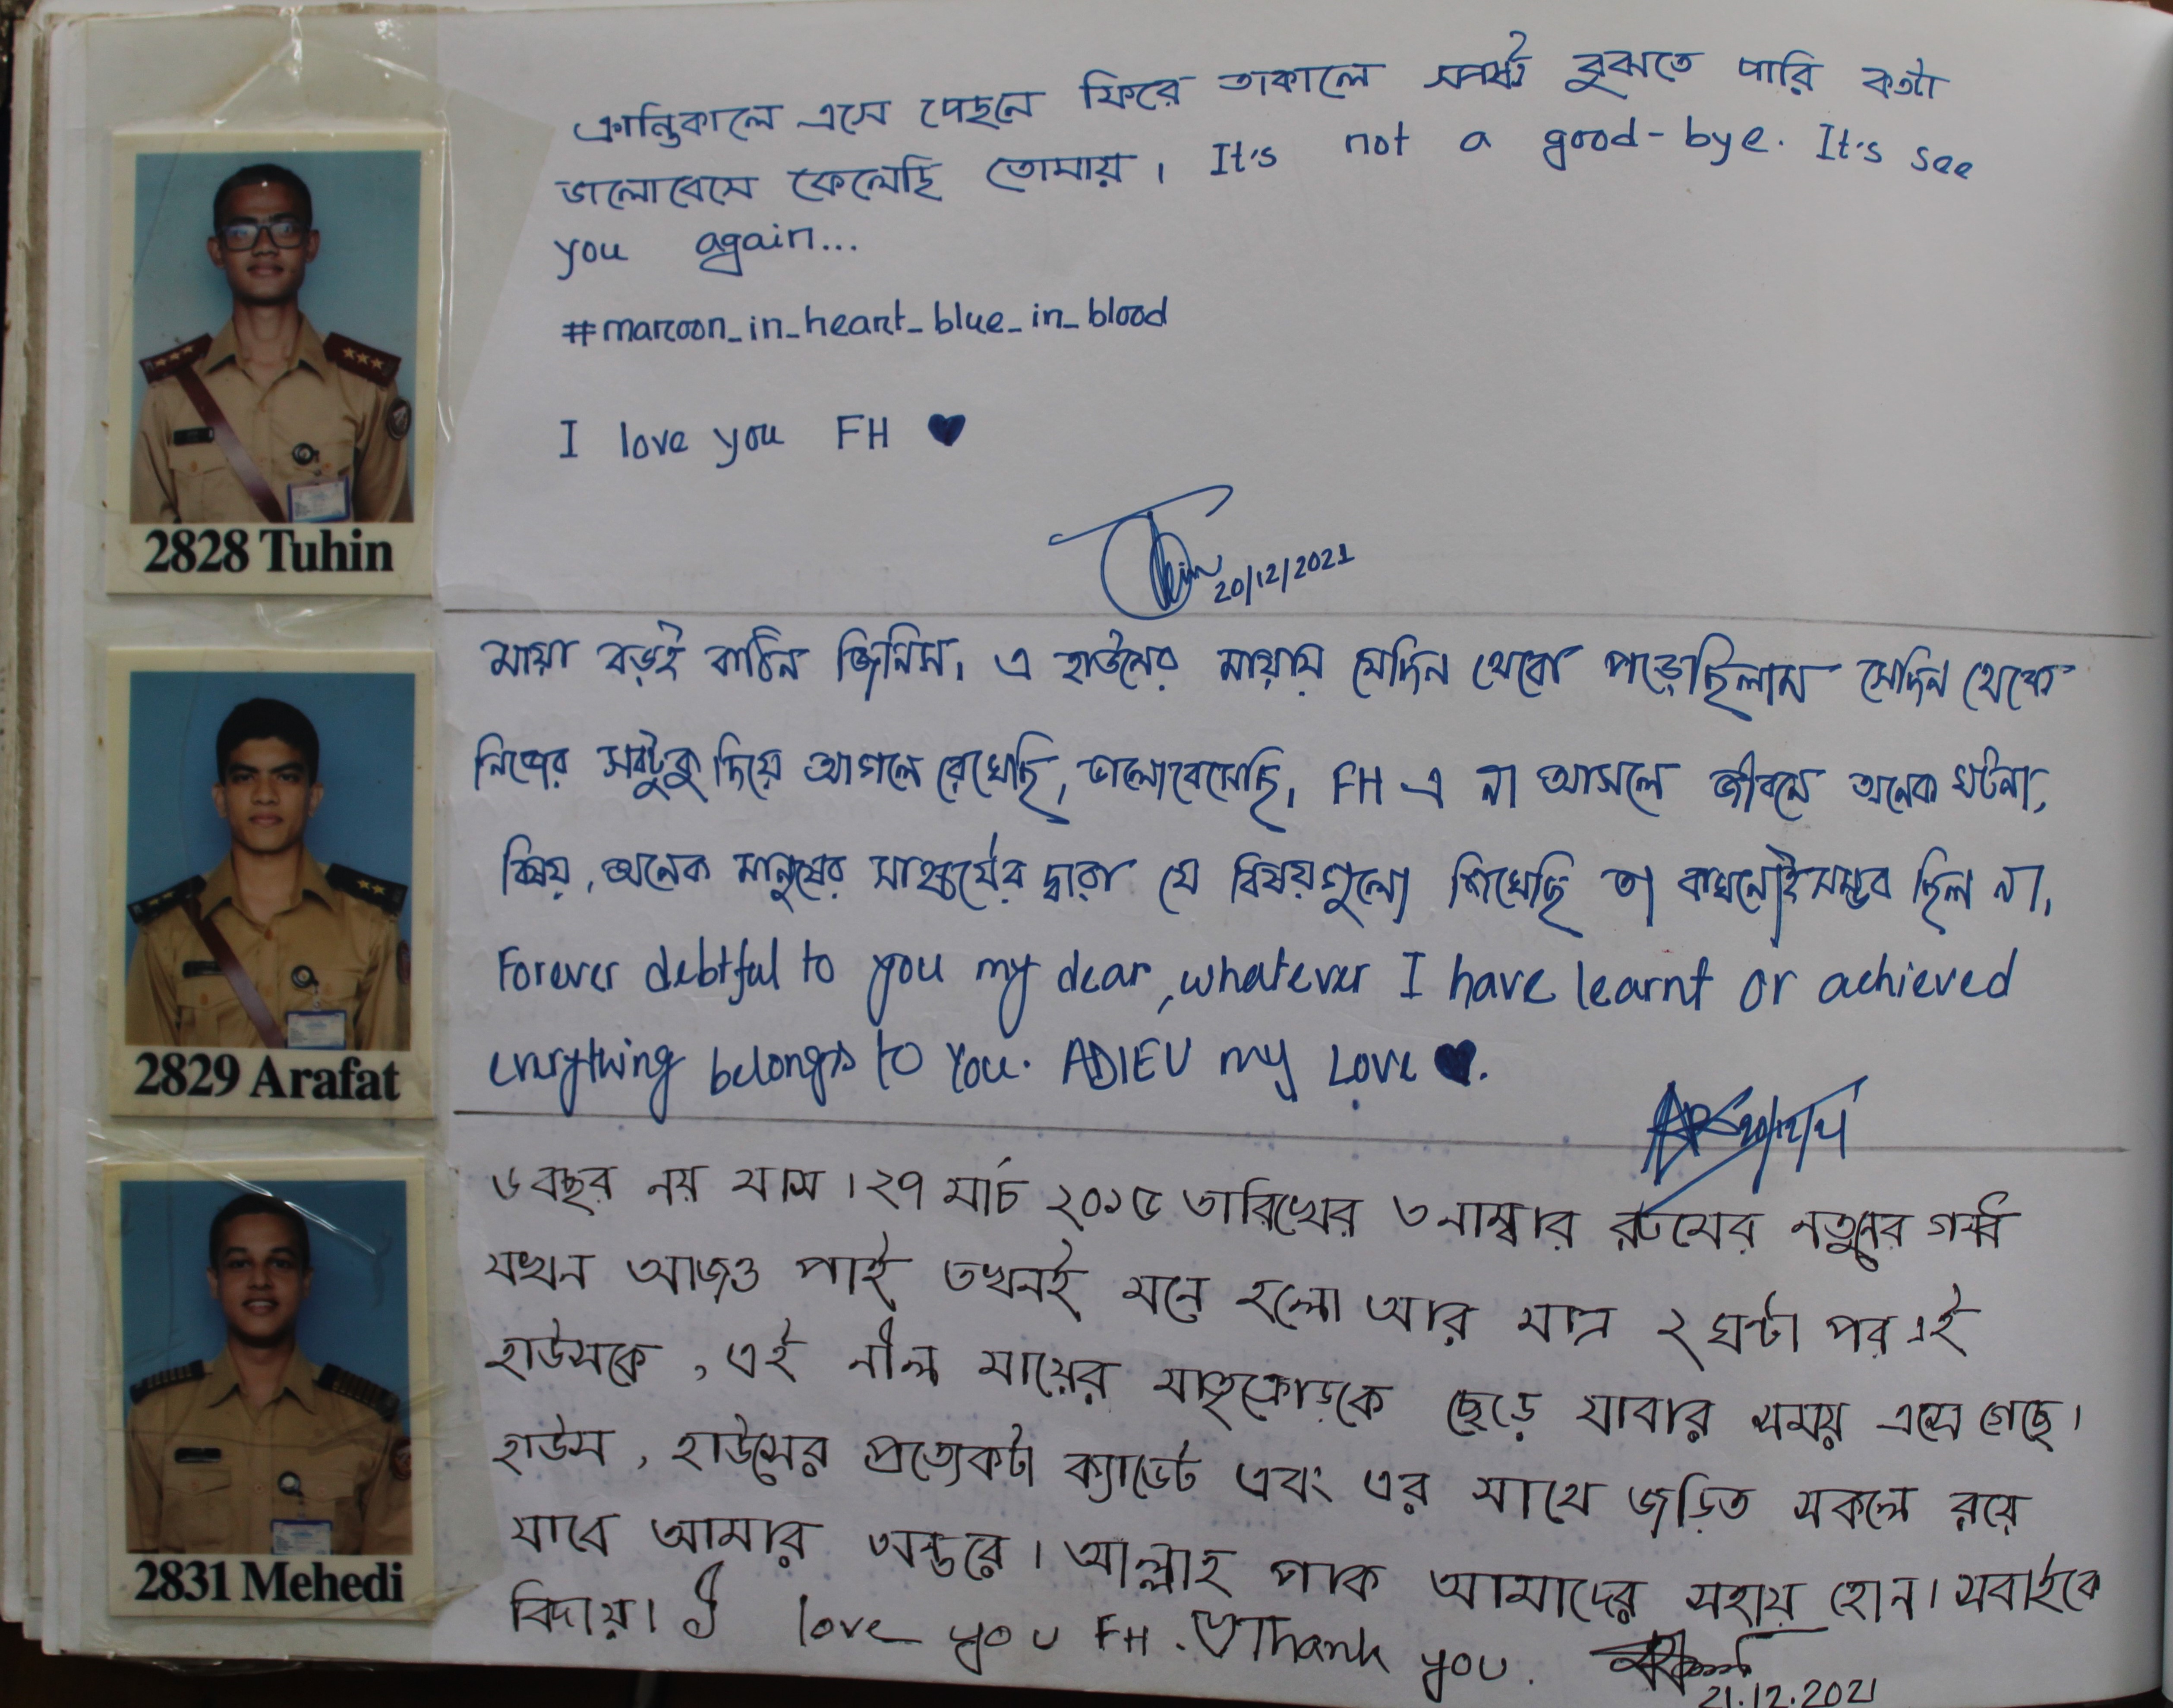 ক্রান্তিকালে এসে পেছনে ফিরে তাকালে স্পষ্ট বুঝতে পারি কতটা
ভালোবেসে ফেলেছি তোমায়। It's not a good-bye. It's see
you again...
#maroon_in_heart_blue_in_blood
I love you FH ♥
20/12/2021
2828 Tuhin
মায়া বড়ই কঠিন জিনিস। এ হাউসের মায়ায় যেদিন থেকে পড়েছিলাম সেদিন থেকে
নিজের সবটুকু দিয়ে আগলে রেখেছি, ভালোবেসেছি। FH এ না আসলে জীবনে অনেক ঘটনা,
বিষয়, অনেক মানুষের সাহচর্যের দ্বারা যে বিষয়গুলো শিখেছি তা কখনোই সম্ভব ছিল না।
Forever debtful to you my dear, whatever I have learnt or achieved
everything belongs to You. ADIEU my Love ♥.
20/12/21
2829 Arafat
৬ বছর নয় মাস। ২৭ মার্চ ২০১৫ তারিখের ৩ নাম্বার রুমের নতুনের গন্ধ
যখন আজও পাই তখনই মনে হলো আর মাত্র ২ ঘন্টা পর এই
হাউসকে, এই নীল মায়ের মাতৃক্রোড়কে ছেড়ে যাবার সময় এসে গেছে।
হাউস, হাউসের প্রত্যেকটা ক্যাডেট এবং এর সাথে জড়িত সকলে রয়ে
যাবে আমার অন্তরে। আল্লাহ পাক আমাদের সহায় হোন। সবাইকে
বিদায়। I love you FH. ♡ Thank you.
21.12.2021
2831 Mehedi